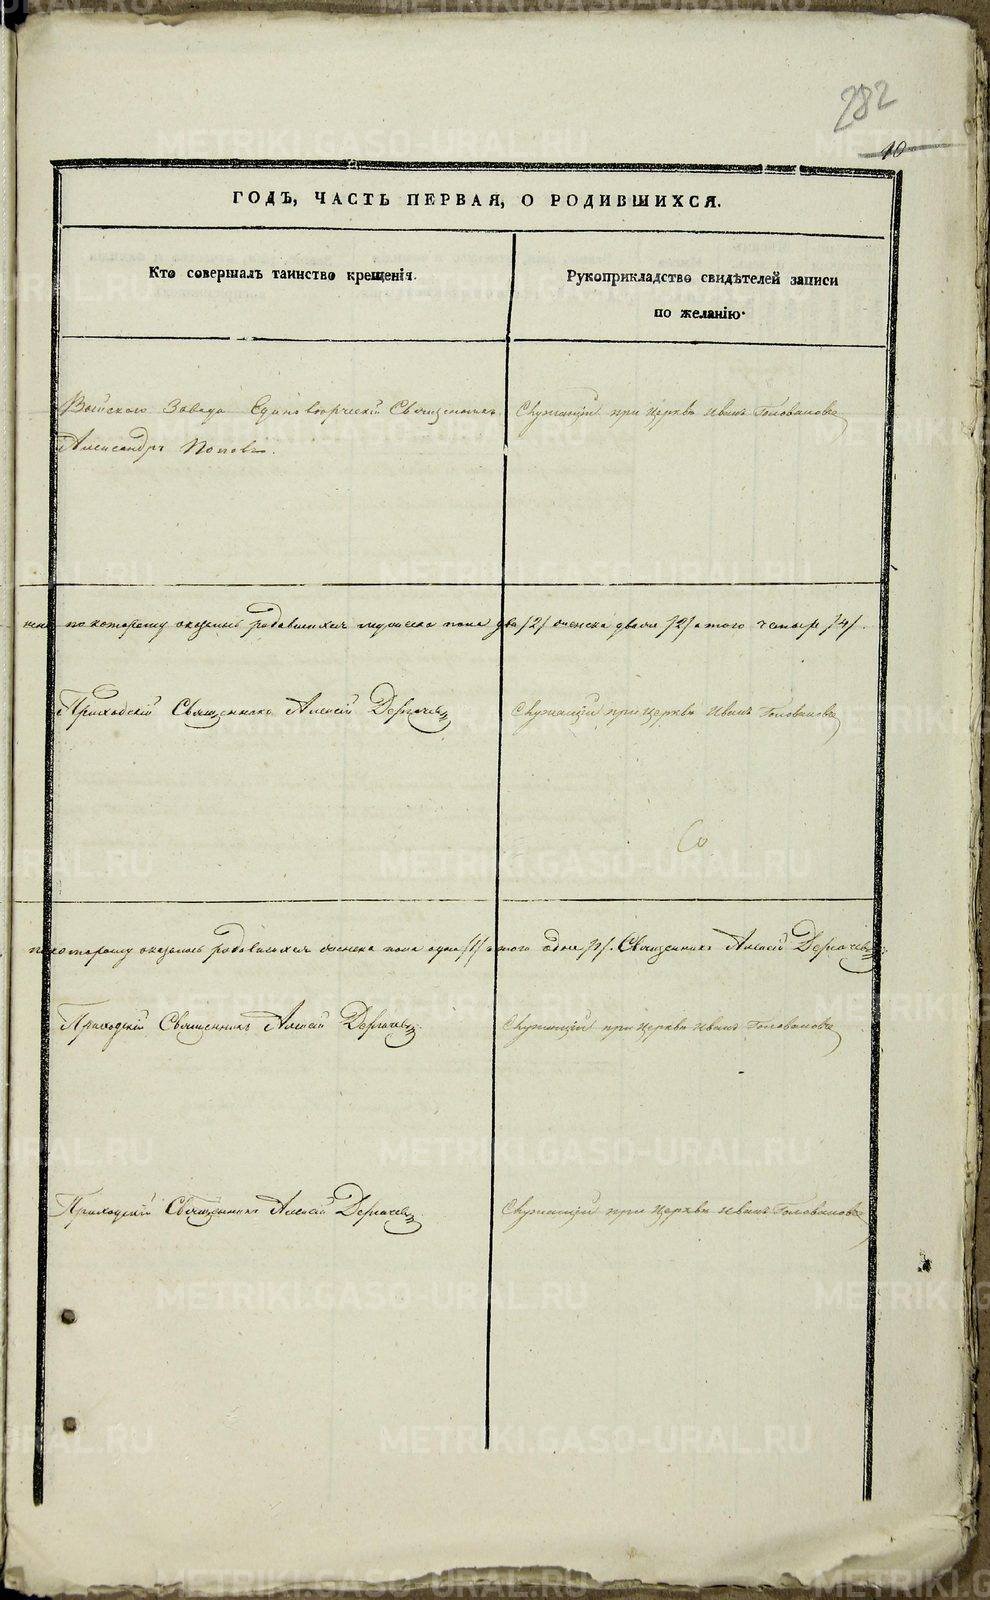 282
10
ГОДЪ, ЧАСТЬ ПЕРВАЯ, О РОДИВШИХСЯ.
Кто совершалъ таинство крещенія.
Рукоприкладство свидѣтелей записи
по желанію.
Завода Единоверческій Священникъ
Александръ Поповъ.
Служащій при церкве Иванъ Головановъ
по которому оказалось родившихся мужеска пола два /2/ женска двое /2/ а того четыре /4/.
Приходскій Священникъ Алексій Дергачевъ
Служащій при церкве Иванъ Головановъ
Со
по которому оказалось родившихся женска пола одна /1/ а того одна /1/. Священникъ Алексій Дергачевъ.
Приходскій Священникъ Алексій Дергачевъ.
Служащій при церкве Иванъ Головановъ
Приходскій Священникъ Алексій Дергачевъ.
Служащій при церкве Иванъ Головановъ
METRIKI.GASO-URAL.RU